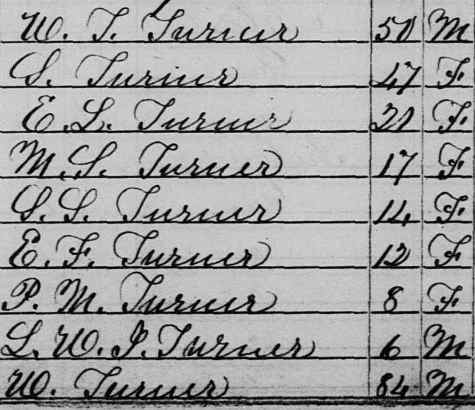 W. T. Turner 50 M
S. Turner 47 F
E. L. Turner 20 F
M. S. Turner 17 F
S. S. Turner 14 F
E. F. Turner 12 F
P. M. Turner 8 F
L. W. J. Turner 6 M
W. Turner 84 M